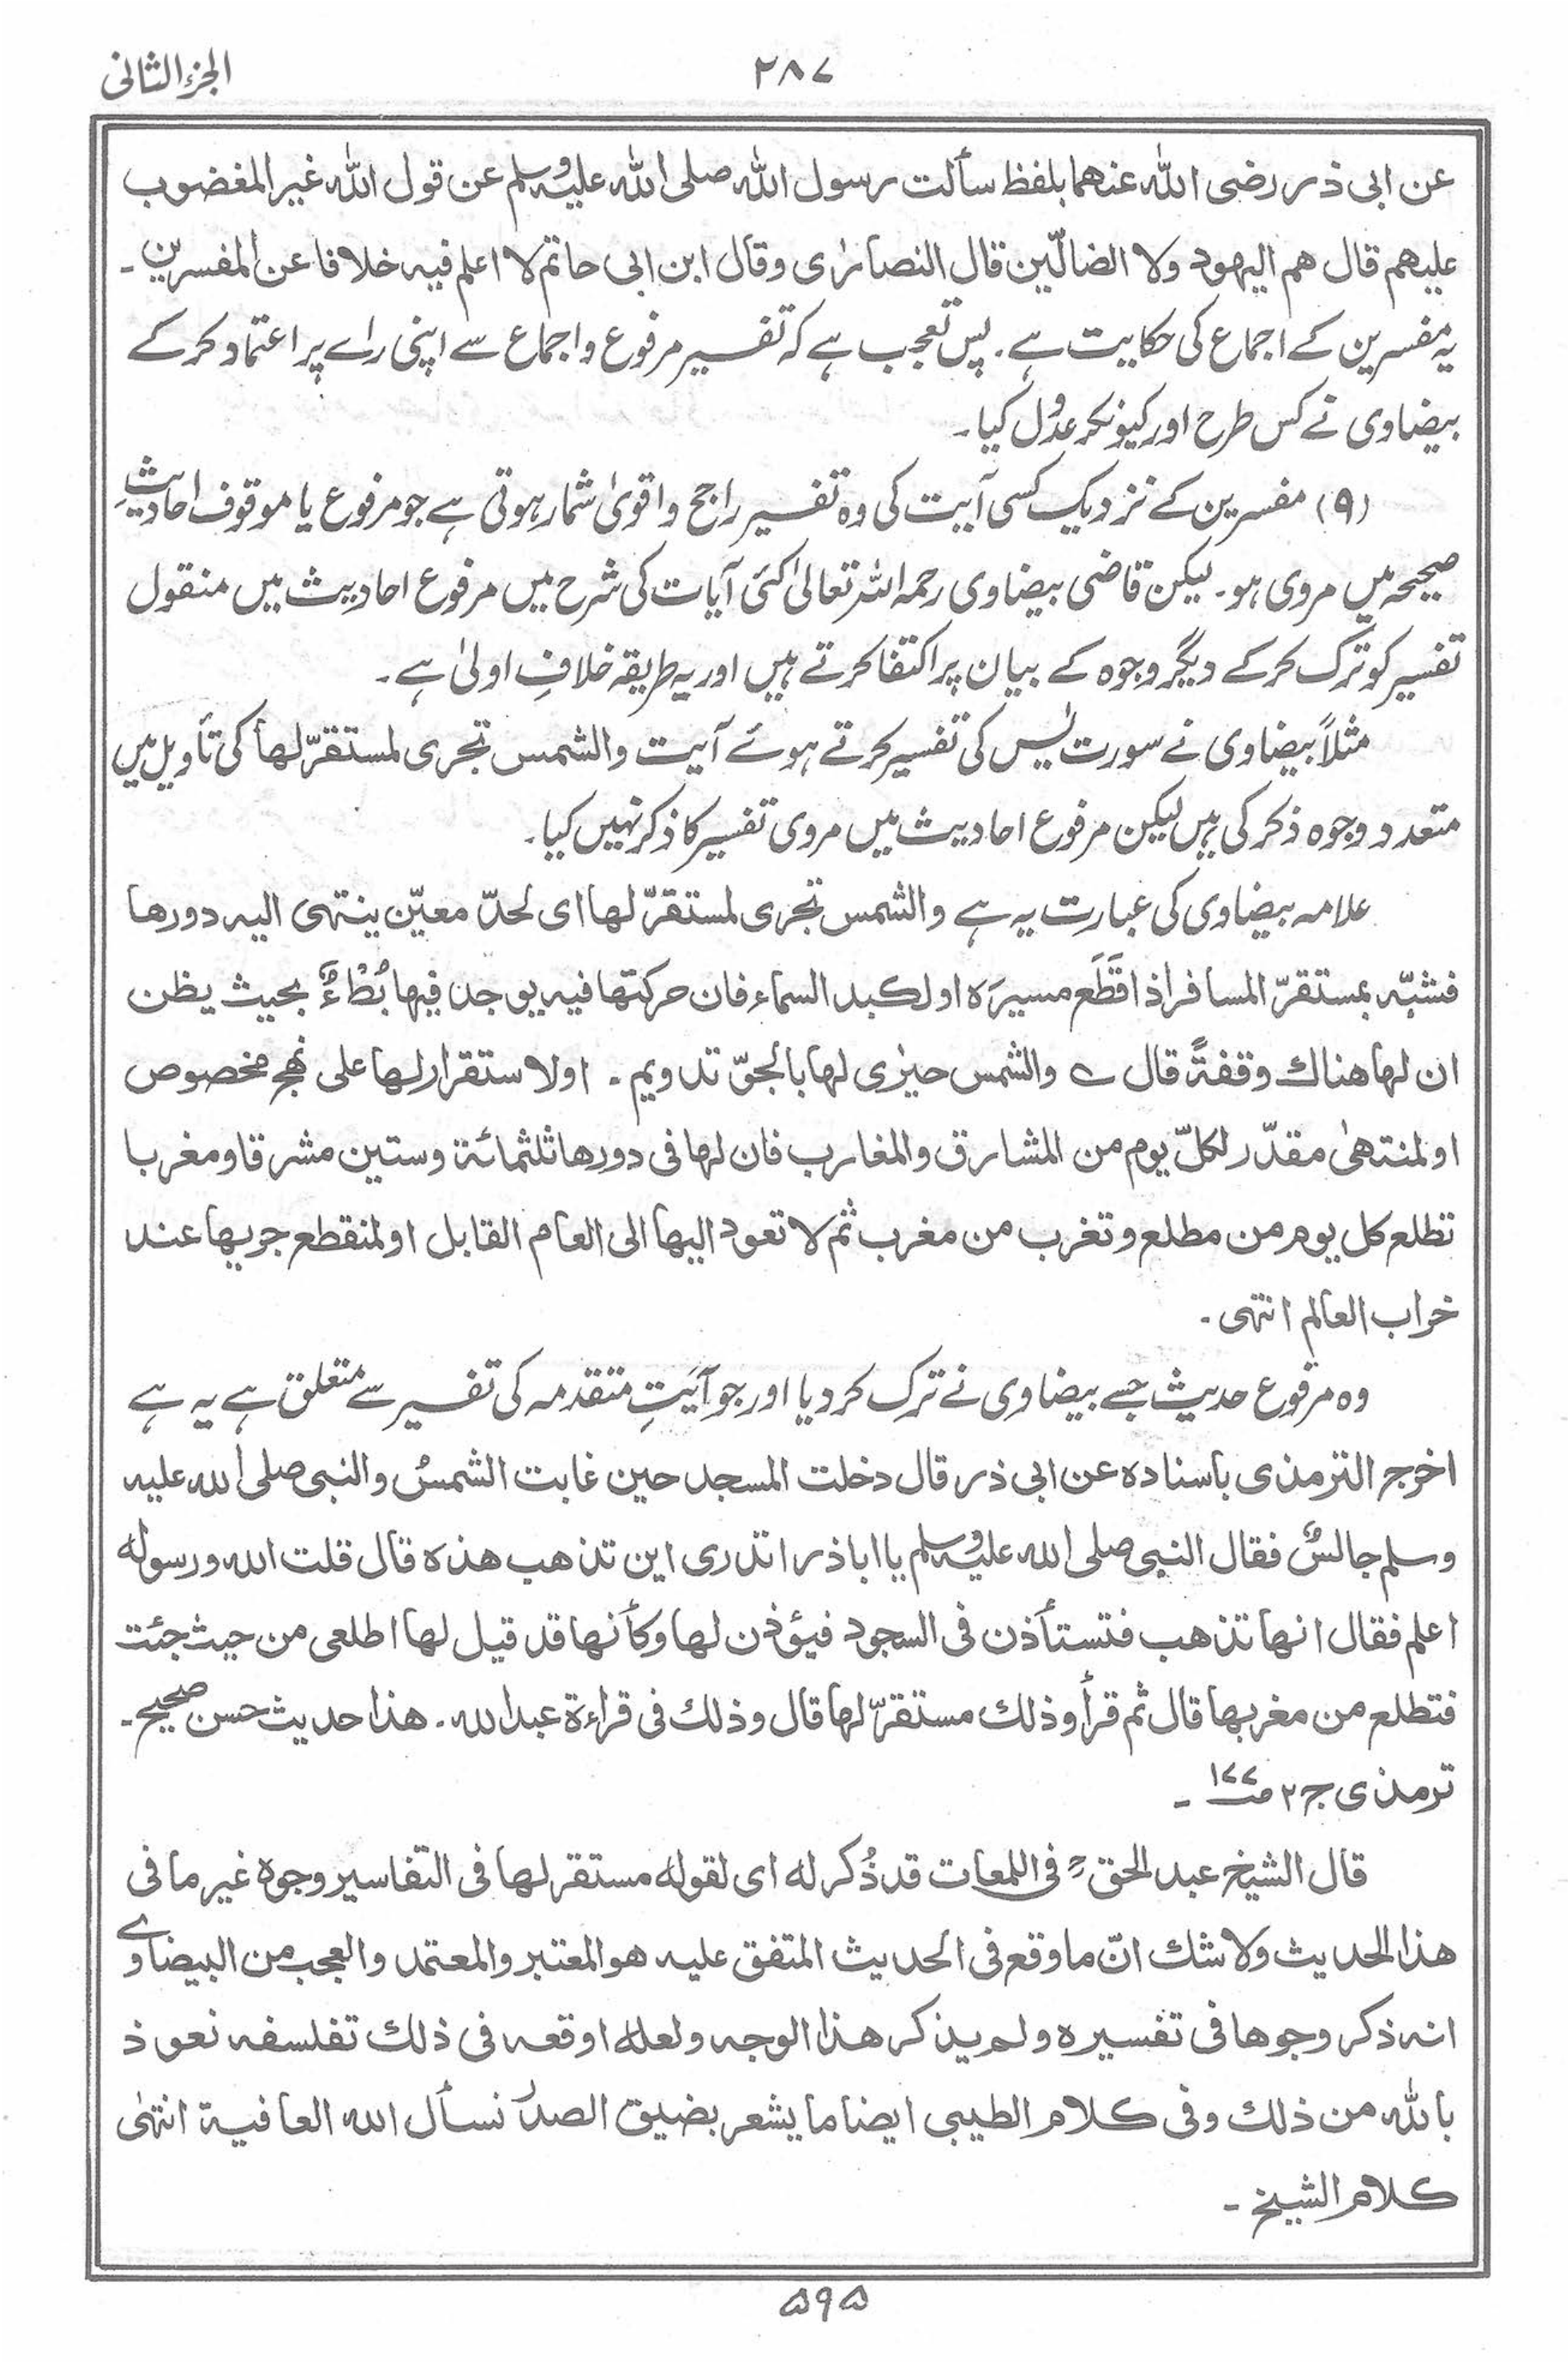 الجزء الثانی
۲۸۷
عن ابی ذر رضی اللہ عنھما بلفظ سألت رسول اللہ صلی اللہ علیہ وسلم عن قول اللہ غیر المغضوب
علیھم قال ھم الیھود ولا الضالّین قال النصارٰی وقال ابن ابی حاتم لا اعلم فیہ خلافا عن المفسرین۔
یہ مفسرین کے اجماع کی حکایت ہے۔ پس تعجب ہے کہ تفسیر مرفوع و اجماع سے اپنی رائے پر اعتماد کرکے
بیضاوی نے کس طرح اور کیونکر عدُول کیا۔
(۹) مفسرین کے نزدیک کسی آیت کی وہ تفسیر راجح و اقویٰ شمار ہوتی ہے جو مرفوع یا موقوف احادیثِ
صحیحہ میں مروی ہو۔ لیکن قاضی بیضاوی رحمہ اللہ تعالیٰ کئی آیات کی شرح میں مرفوع احادیث میں منقول
تفسیر کو ترک کرکے دیگر وجوہ کے بیان پر اکتفا کرتے ہیں اور یہ طریقہ خلافِ اولیٰ ہے۔
مثلاً بیضاوی نے سورت یٰس کی تفسیر کرتے ہوئے آیت والشمس تجری لمستقرّ لھا کی تأویل میں
متعدد وجوہ ذکر کی ہیں لیکن مرفوع احادیث میں مروی تفسیر کا ذکر نہیں کیا۔
علامہ بیضاوی کی عبارت یہ ہے والشمس تجری لمستقرّ لھا ای لحدّ معیّن ینتھی الیہ دورھا
فشبّہ بمستقرّ المسافر اذا قَطَع مسیرَہ او لکبد السماء فان حرکتھا فیہ یوجد فیھا بُطْءٌ بحیث یظن
ان لھا ھناك وقفۃً قال ؎ والشمس حیرٰی لھا بالجوّ تدویم۔ او لاستقرار لھا علی نھج مخصوص
او لمنتھیٰ مقدّر لکلّ یوم من المشارق والمغارب فان لھا فی دورھا ثلثمائۃ وستین مشرقا ومغربا
تطلع کل یوم من مطلع وتغرب من مغرب ثم لا تعود الیھا الی العام القابل او لمنقطع جریھا عند
خراب العالم انتھی۔
وہ مرفوع حدیث جسے بیضاوی نے ترک کردیا اور جو آیَتِ متقدمہ کی تفسیر سے متعلق ہے یہ ہے
اخرج الترمذی باسنادہ عن ابی ذر قال دخلت المسجد حین غابت الشمسُ والنبی صلی اللہ علیہ
وسلم جالسٌ فقال النبی صلی اللہ علیہ وسلم یا اباذر اتدری این تذھب ھذہ قال قلت اللہ ورسولہ
اعلم فقال انھا تذھب فتستأذن فی السجود فیؤذن لھا وکأنھا قد قیل لھا اطلعی من حیث جئت
فتطلع من مغربھا قال ثم قرأ وذلك مستقرّ لھا قال وذلك فی قراءۃ عبد اللہ۔ ھذا حدیث حسن صحیح۔
ترمذی ج۲ ص۱۷۷ ۔
قال الشیخ عبد الحقؒ فی اللمعات قد ذُکر لہ ای لقولہ مستقر لھا فی التفاسیر وجوہ غیر ما فی
ھذا الحدیث ولا شك انّ ما وقع فی الحدیث المتفق علیہ ھو المعتبر والمعتمد والعجب من البیضاوے
انہ ذکر وجوھا فی تفسیرہ ولم یذکر ھذا الوجہ ولعلہ اوقعہ فی ذلك تفلسفہ نعوذ
باللہ من ذلك وفی کلام الطیبی ایضا ما یشعر بضیق الصدر نسأل اللہ العافیۃ انتھٰی
کلام الشیخ۔
۵۹۵